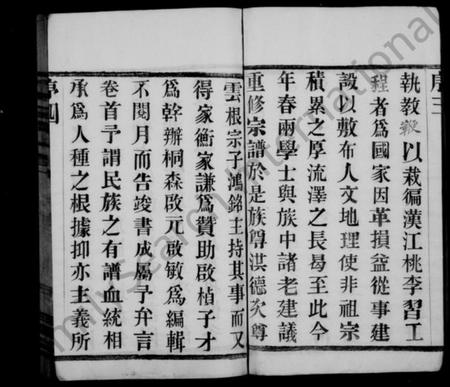 序三
執教報以栽徧漢江桃李習工
程者為國家因革損益從事建
設以敷布人文地理使非祖宗
積累之厚流澤之長曷至此今
年春兩學士與族中諸老建議
重修宗譜於是族尊淇德次尊
雲根宗子鴻錦主持其事而又
得家衡家謙為贊助啟楨子才
為幹辦桐森啟元啟敏為編輯
不閱月而告竣書成屬予弁言
卷首予謂民族之有譜血統相
承為人種之根據抑亦主義所
序四